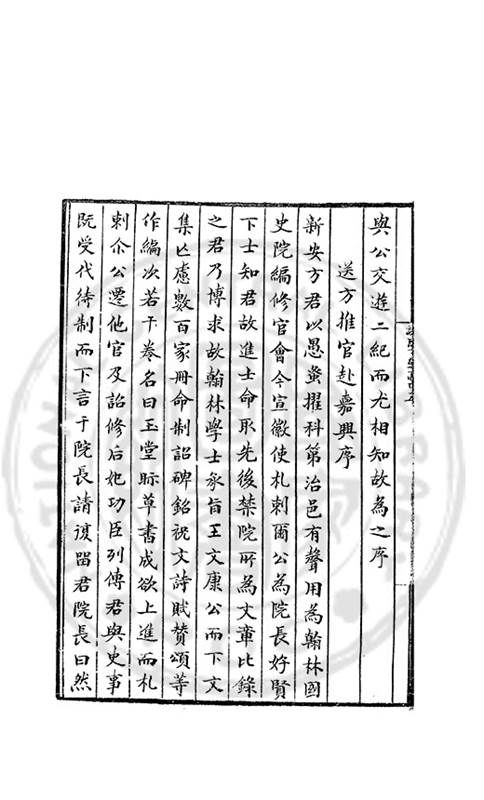 與公交遊二紀而尤相知故為之序
送方推官赴嘉興序
新安方君以愚蚤擢科第治邑有聲用為翰林國
史院編修官會今宣徽使札剌爾公為院長好賢
下士知君故進士命取先後禁院所為文章比錄
之君乃博求故翰林學士承旨王文康公而下文
集亡慮數百家冊命制詔碑銘祝文詩賦贊頌等
作編次若干卷名曰玉堂眎草書成欲上進而札
剌尒公遷他官及詔修后妃功臣列傳君與史事
旣受代待制而下言于院長請復留君院長曰然